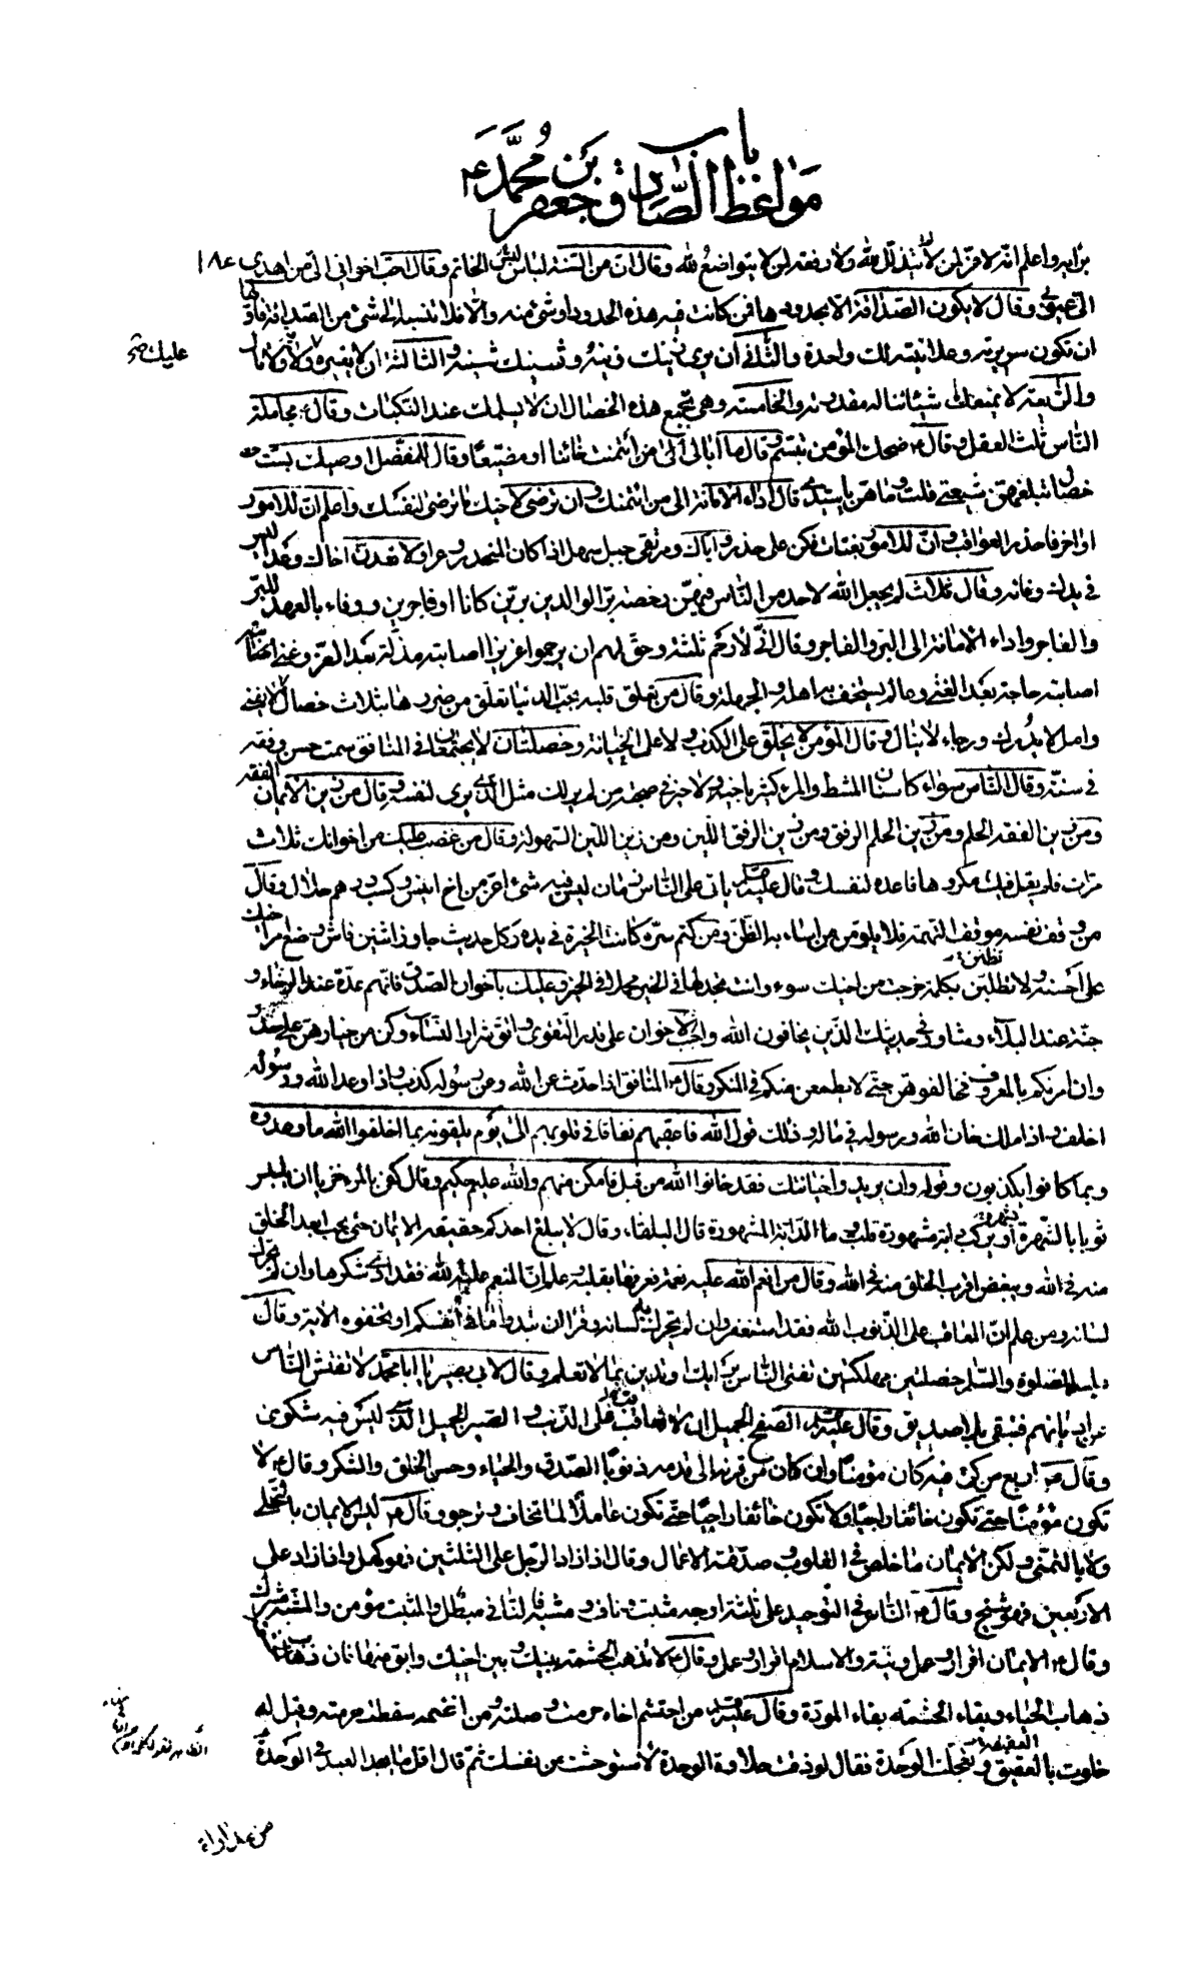 باب
مواعظ الصادق جعفر بن محمد ع
براىه واعلم انه لا عز لمن لا يتذلل لله ولا رفعة لمن لا يتواضع لله وقال ان من السنة لبس الخاتم وقال احب اخواني الى من اهدى ١٨٤
الى عيوبى وقال لا يكون الصداقة الا بحدودها فمن كانت فيه هذه الحدود او شئ منه والا فلا تنسبه الى شئ من الصداقة فاولها
ان تكون سريرته وعلانيته لك واحدة والثانى ان يرى زينك زينه وشينك شينه والثالثة ان لا يغيره ولاية ولا مال
عليك صح
والرابعة لا يمنعك شيئا تناله مقدرته والخامسة وهى تجمع هذه الخصال ان لا يسلمك عند النكبات وقال ع مجاملة
الناس ثلث العقل وقال ع ضحك المؤمن تبسم وقال ما ابالى الى من ائتمنت خائنا او مضيعا وقال للمفضل اوصيك بست
خصال تبلغهن شيعتى قلت وما هن يا سيدى قال اداء الامانة الى من ائتمنك وان ترضى لاخيك ما ترضى لنفسك واعلم ان للامور
اواخر فاحذر العواقب وان للامور بغتات فكن على حذر واياك ومرتقى جبل سهل اذا كان المنحدر وعرا ولا تعدن اخاك وعدا ليس
فى يدك وفاءه وقال ثلاث لم يجعل الله لاحد من الناس فيهن رخصة بر الوالدين برين كانا او فاجرين ووفاء بالعهد للبر
والفاجر واداء الامانة الى البر والفاجر وقال انى لارحم ثلثة وحق لهم ان يرحموا عزيز اصابته مذلة بعد العز وغنى
اصابته حاجة بعد الغنى وعالم يستخف به اهله والجهلة وقال من تعلق قلبه بحب الدنيا تعلق من ضررها بثلاث خصال هم لا يفنى
وامل لا يدرك ورجاء لا ينال وقال المؤمن لا يخلق على الكذب ولا على الخيانة وخصلتان لا يجتمعان فى المنافق سمت حسن وفقه
فى سنة وقال الناس سواء كاسنان المشط والمرء كثير باخيه ولا خير فى صحبة من لم ير لك مثل الذى يرى لنفسه وقال من زين الايمان الفقه
ومن زين الفقه الحلم ومن زين الحلم الرفق ومن زين الرفق اللين ومن زين اللين السهولة وقال من غضب عليك من اخوانك ثلاث
مرات فلم يقل فيك مكروها فاعده لنفسك وقال عليه السلام ياتى على الناس زمان ليس فيه شئ اعز من اخ انيس وكسب درهم حلال وقال
من وقف نفسه موقف التهمة فلا يلومن من اساء به الظن ومن كتم سره كانت الخيرة فى يده وكل حديث جاوز اثنين فاش وضع امر اخيك
على احسنه ولا تطلبن بكلمة خرجت من اخيك سوء وانت تجد لها فى الخير محملا وعليك باخوان الصدق فانهم عدة عند الرخاء و
تظنن
جنة عند البلاء وشاور فى حديثك الذين يخافون الله واحبب الاخوان على قدر التقوى واتق شرار النساء وكن من خيارهن على حذر
وان امرنكم بالمعروف فخالفوهن حتى لا يطمعن منكم فى المنكر وقال ع المنافق اذا حدث عن الله وعن رسوله كذب واذا وعد الله ورسوله
اخلف واذا ملك خان الله ورسوله فى ماله وذلك قول الله فاعقبهم نفاقا فى قلوبهم الى يوم يلقونه بما اخلفوا الله ما وعدوه
وبما كانوا يكذبون وقوله وان يريدوا خيانتك فقد خانوا الله من قبل فامكن منهم والله عليم حكيم وقال كفى بالمرء خزيا ان يلبس
ثوبا بالشهرة او يركب دابة مشهورة قلت وما الدابة المشهورة قال البلقاء وقال لا يبلغ احدكم حقيقة الايمان حتى يحب ابعد الخلق
منه فى الله ويبغض اقرب الخلق منه فى الله وقال من انعم الله عليه نعمة فعرفها بقلبه وعلم ان المنعم عليه الله فقد ادى شكرها وان لم يحرك
لسانه ومن علم ان المعاقب على الذنوب الله فقد استغفر وان لم يحرك به لسانه وقرأ ان تبدوا ما فى انفسكم او تخفوه الاية وقال
عليه الصلوة والسلام خصلتين مهلكتين تفتى الناس برايك او تدين بما لا تعلم وقال لابى بصير يا ابا محمد لا تفتش الناس
عن اديانهم فتبقى بلا صديق وقال عليه السلام الصفح الجميل ان لا تعاقب على الذنب والصبر الجميل الذى ليس فيه شكوى
وقال ع اربع من كن فيه كان مؤمنا وان كان من قرنه الى قدمه ذنوبا الصدق والحياء وحسن الخلق والشكر وقال ع لا
تكون مؤمنا حتى تكون خائفا راجيا ولا تكون خائفا راجيا حتى تكون عاملا لما تخاف وترجو وقال ع ليس الايمان بالتحلى
ولا بالتمنى ولكن الايمان ما خلص فى القلوب وصدقته الاعمال وقال اذا زاد الرجل على الثلثين فهو كهل واذا زاد على
الاربعين فهو شيخ وقال ع الناس فى التوحيد على ثلثة اوجه مثبت وناف ومشبه فالنافى مبطل والمثبت مؤمن والمشبه مشرك
وقال ع الايمان اقرار وعمل ونية والاسلام اقرار وعمل وقال ع لا تذهب الحشمة بينك وبين اخيك وابق منها فان ذهاب
ذهاب الحياء وبقاء الحشمة بقاء المودة وقال عليه السلام من احتشم اخاه حرمت وصلته ومن اغتمه سقطت حرمته وقيل له
خلوت بالعقيق وتعجلت الوحدة فقال لو ذقت حلاوة الوحدة لاستوحشت من نفسك ثم قال اقل ما يجد العبد فى الوحدة
من مداراة